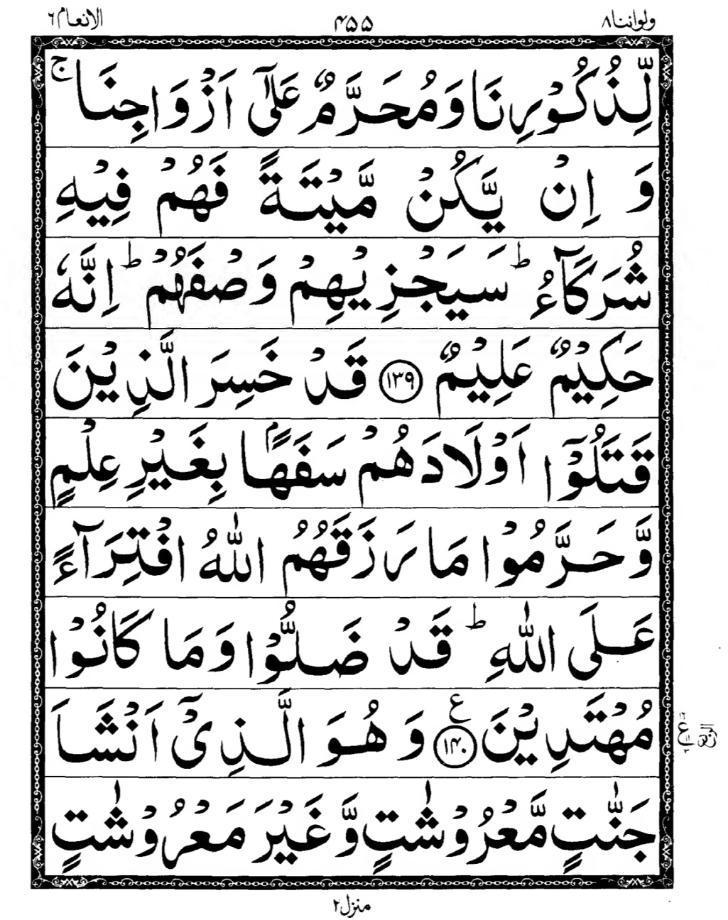 ولواننا ۸ ۴۵۵ الانعام ٦
لِّذُكُوْرِنَا وَمُحَرَّمٌ عَلٰۤى اَزْوَاجِنَا ۚ
وَ اِنْ يَّكُنْ مَّيْتَةً فَهُمْ فِيْهِ
شُرَكَآءُ ؕ سَيَجْزِيْهِمْ وَصْفَهُمْ ؕ اِنَّهٗ
حَكِيْمٌ عَلِيْمٌ ۱۳۹ قَدْ خَسِرَ الَّذِيْنَ
قَتَلُوْۤا اَوْلَادَهُمْ سَفَهًۢا بِغَيْرِ عِلْمٍ
وَّحَرَّمُوْا مَا رَزَقَهُمُ اللّٰهُ افْتِرَآءً
عَلَى اللّٰهِ ؕ قَدْ ضَلُّوْا وَمَا كَانُوْا
مُهْتَدِيْنَ ۱۴۰ ع وَ هُوَ الَّذِىْۤ اَنْشَاَ
جَنّٰتٍ مَّعْرُوْشٰتٍ وَّغَيْرَ مَعْرُوْشٰتٍ
منزل ۲